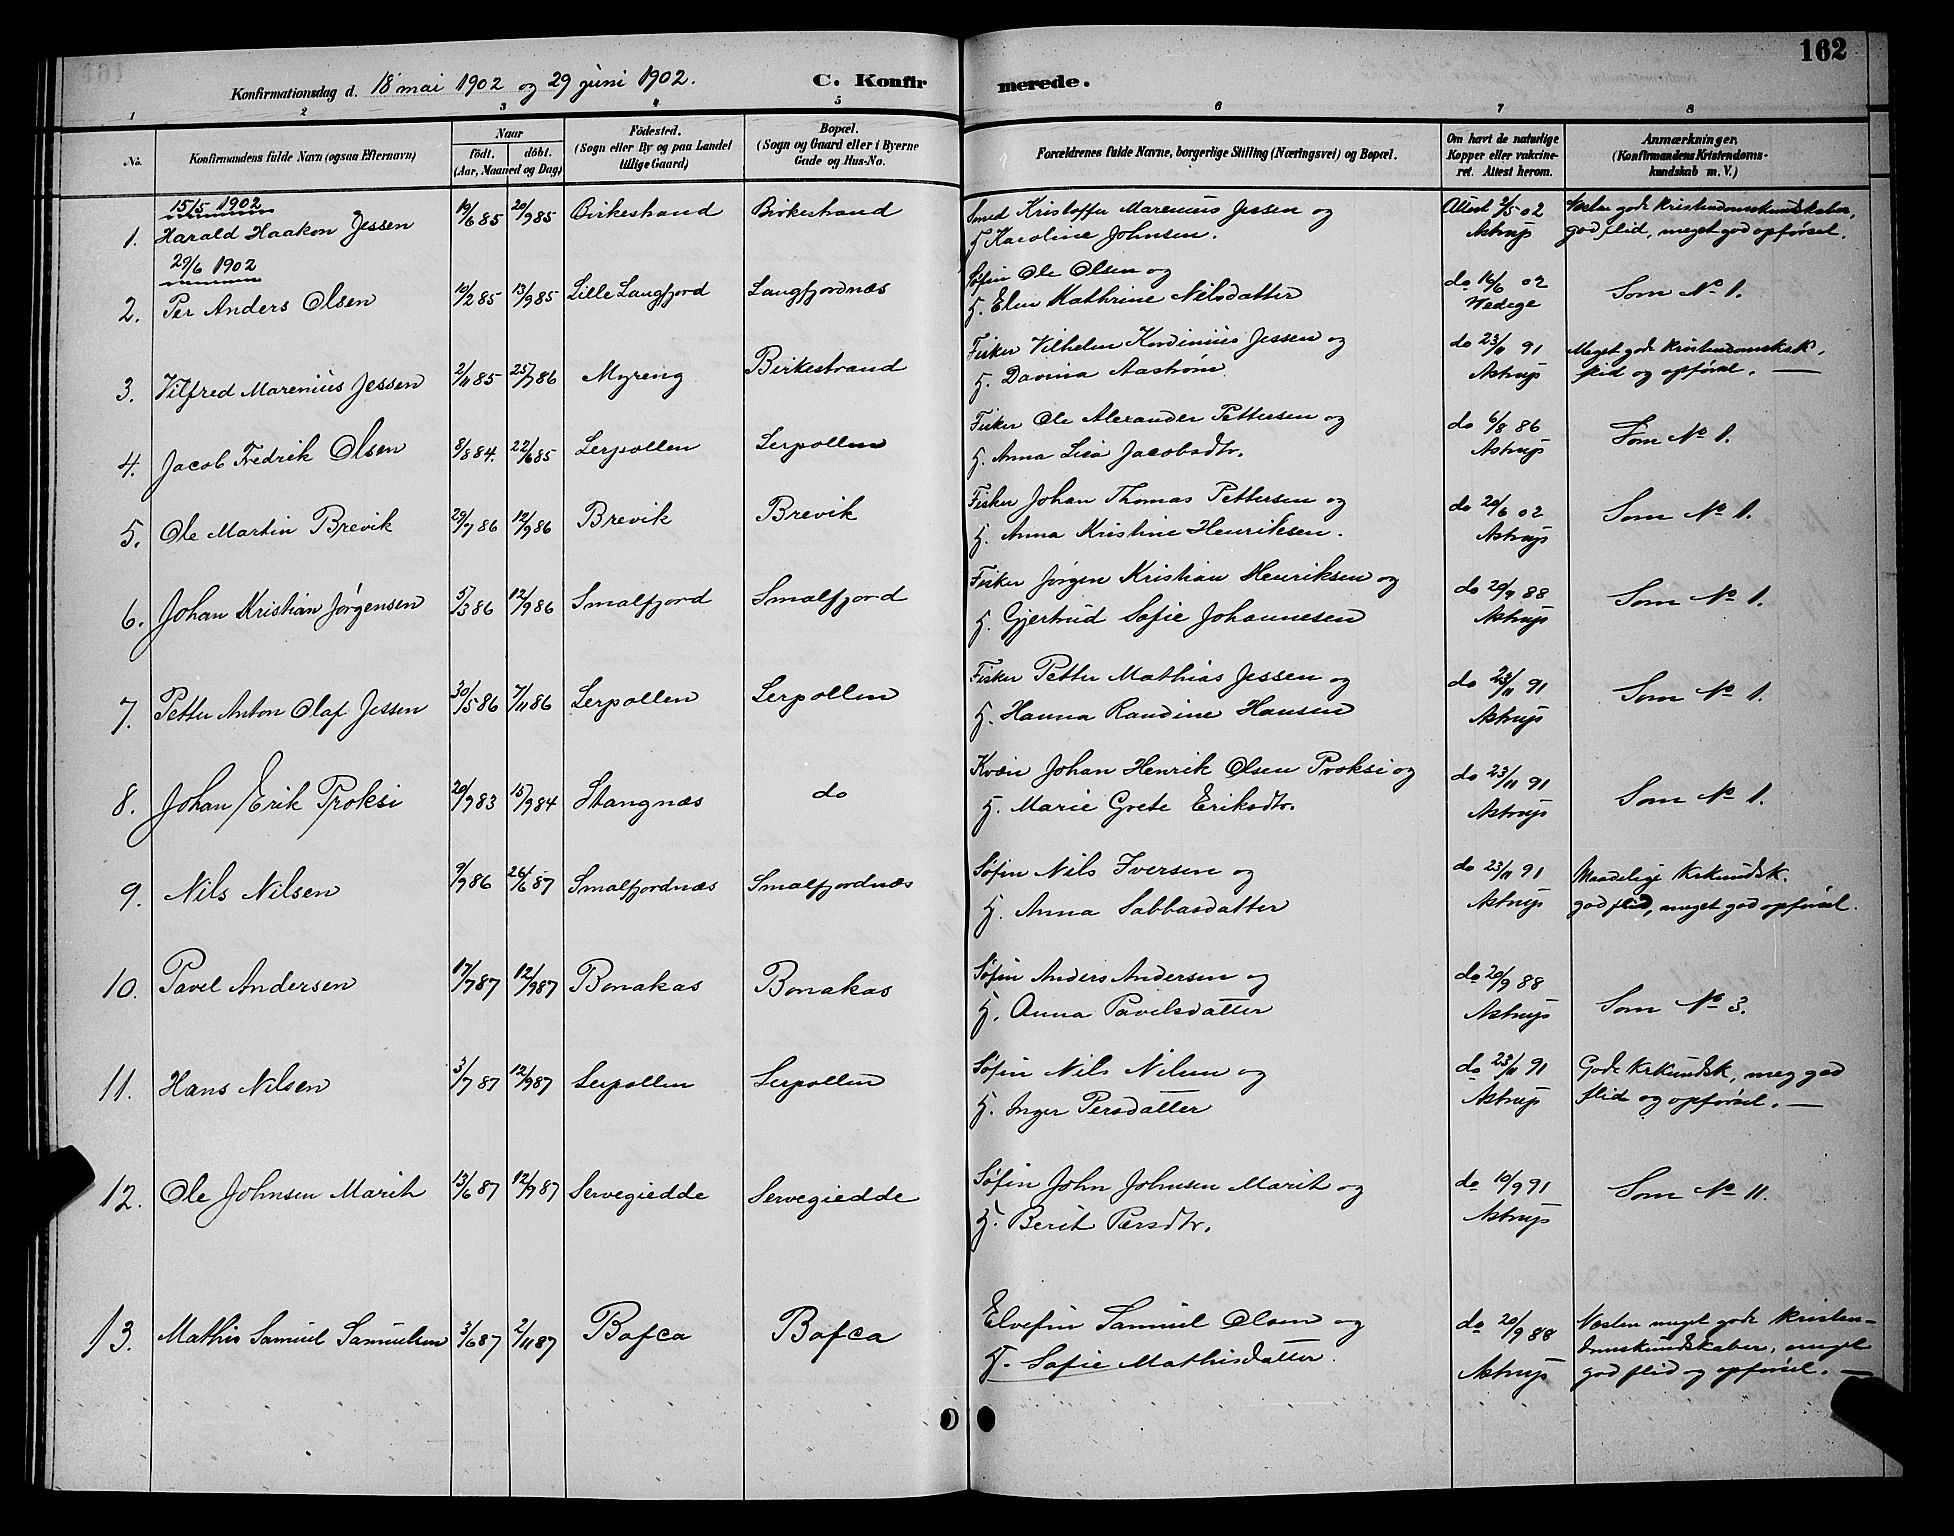 162
Konfirmationsdag d. 18 mai 1902 og 29 juni 1902. C. Konfirmerede.
1 2 3 4 5 6 7 8
No. Konfirmandens fulde Navn (ogsaa Efternavn) Naar födt. döbt. (Aar, Maaned og Dag) Födested. (Sogn eller By og paa Landet tillige Gaard) Bopæl. (Sogn og Gaard eller i Byerne Gade og Hus-No. Forældrenes fulde Navne, borgerlige Stilling (Næringsvei) og Bopæl. Om havt de naturlige Kopper eller vakcineret. Attest herom. Anmærkninger. (Konfirmandens Kristendomskundskab m. V.)
15/5 1902
1. Harald Haakon Jessen 19/6 85 20/9 85 Birkestrand Birkestrand Smed Kristoffer Marenius Jessen og
H. Karoline Johnsen. Attest 2/5 02 Astrup Næsten gode Kristendomskundskaber, god flid, meget god opførsel.
29/6 1902
2. Per Anders Olsen 10/2 85 13/9 85 Lille Langfjord Langfjordnæs Søfin Ole Olsen og
H. Elen Kathrine Nilsdatter do 16/6 02 Wedege Som No 1.
3. Vilfred Marenius Jessen 2/11 85 25/7 86 Myreng Birkestrand Fisker Vilhelm Kordinius Jessen og
H. Davina Aastrøm. do 23/11 91 Astrup Meget gode Kristendomsksk. flid og opførsel. —
4. Jacob Fredrik Olsen 8/8 84. 22/6 85 Lerpollen Lerpollen Fisker Ole Alexander Pettersen og
H. Anna Lisa Jacobsdtr. do 6/8 86 Astrup Som No 1.
5. Ole Martin Brevik 29/7 86 12/9 86 Brevik Brevik Fisker Johan Thomas Pettersen og
H. Anna Kristine Henriksen. do 20/6 02 Astrup Som No 1.
6. Johan Kristian Jørgensen 5/3 86 12/9 86 Smalfjord Smalfjord Fisker Jørgen Kristian Henriksen og
H. Gjertrud Sofie Johannesen do 20/9 88 Astrup Som No 1.
7. Petter Anton Olaf Jessen 30/5 86 7/11 86 Lerpollen Lerpollen Fisker Petter Mathias Jessen og
H. Hanna Randine Hansen do 23/11 91 Astrup Som No 1.
8. Johan Erik Proksi 20/9 83 15/9 84 Stangnæs do Kvæn Johan Henrik Olsen Proksi og
H. Marie Grete Eriksdtr. do 23/11 91 Astrup Som No 1.
9. Nils Nilsen 9/9 86 26/6 87 Smalfjordnæs Smalfjordnæs Søfin Nils Iversen og
H. Anna Sabbasdatter do 23/11 91 Astrup Maadelige Krkundsk. god flid, meget god opførsel.
10. Pavel Andersen 17/7 87 12/9 87 Bonakas Bonakas Søfin Anders Andersen og
H. Anna Pavelsdatter do 20/9 88 Astrup Som No 3.
11. Hans Nilsen 3/7 87 12/9 87 Lerpollen Lerpollen Søfin Nils Nilsen og
H. Inger Persdatter do 23/11 91 Astrup Gode Krkundsk, meg god flid og opførsel. —
12. Ole Johnsen Marit 13/6 87 12/9 87 Servegiedde Servegiedde Søfin John Johnsen Marit og
H. Berit Persdtr. do 10/9 91 Astrup Som No 11.
13. Mathis Samuel Samuelsen 3/6 87 2/11 87 Bofca Bofca Elvefin Samuel Olsen og
H. Sofie Mathisdatter. do 20/9 88 Astrup Næsten meget gode Kristendomskundskaber, meget god flid og opførsel. —